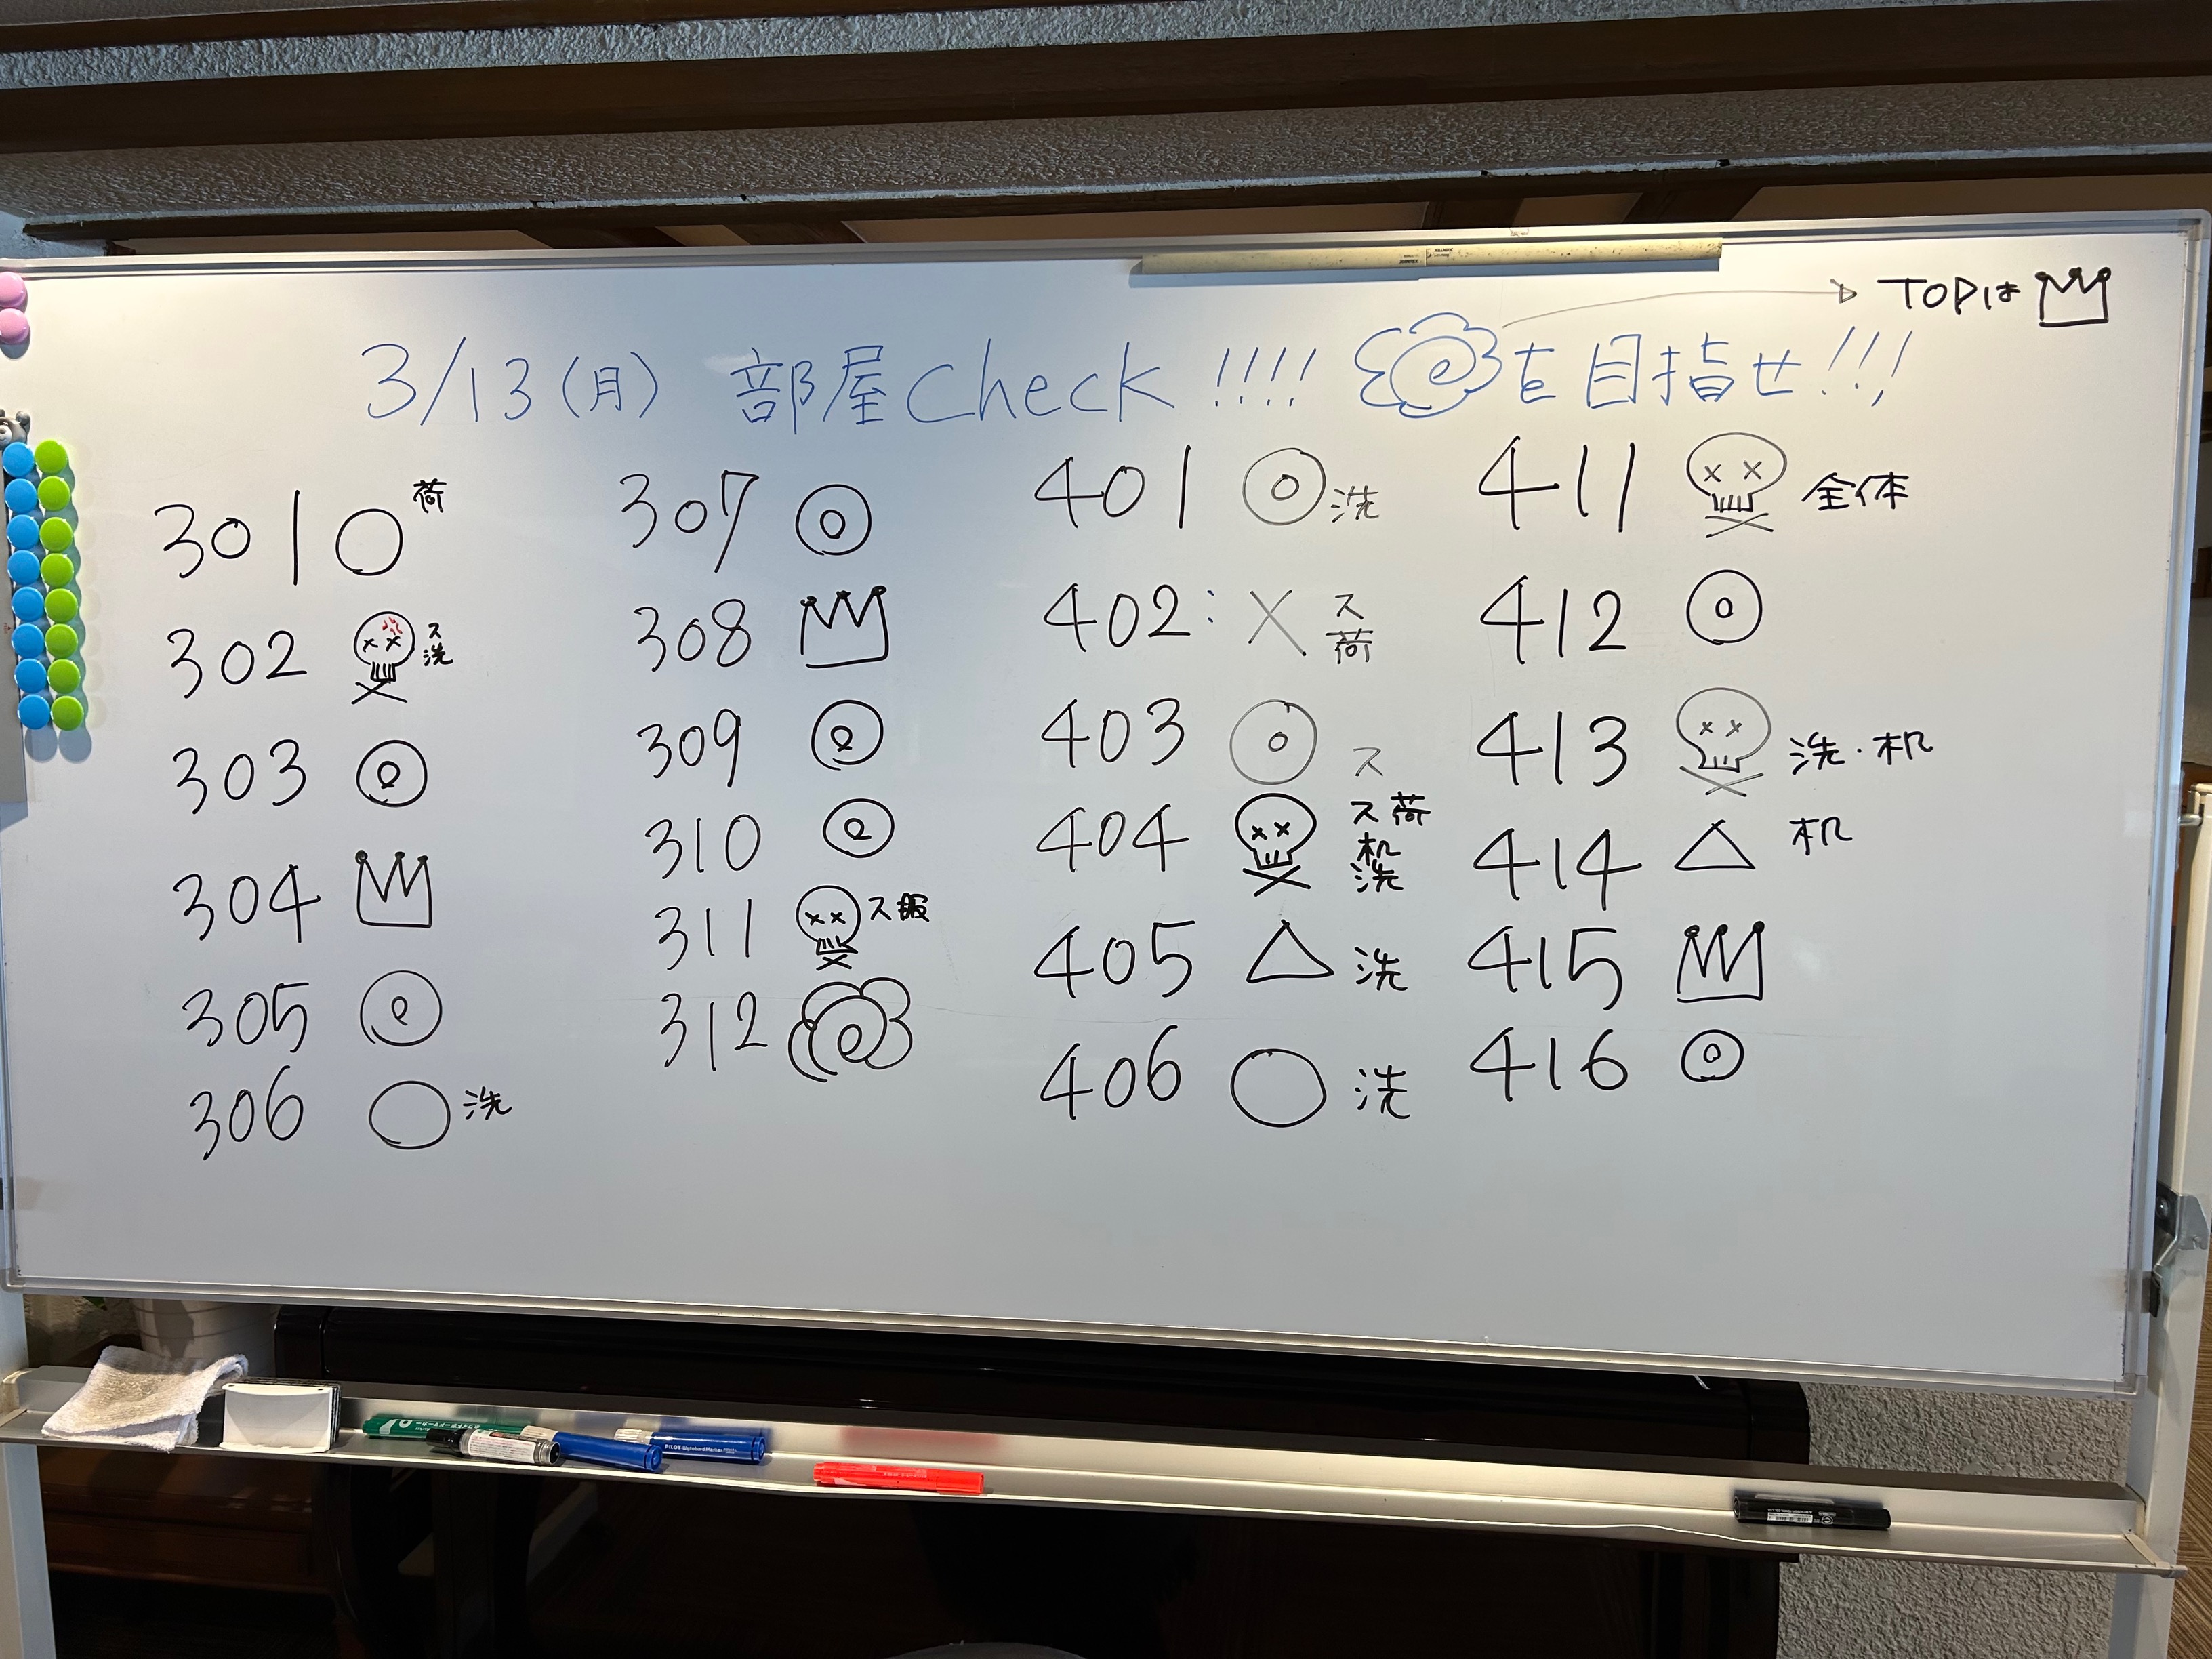 TOPは
3/13(月) 部屋Check!!!! を目指せ!!!
301 ○ 荷
302 ス
洗
303 ◎
304
305 ◎
306 ○ 洗
307 ◎
308
309 ◎
310 ◎
311 ス 服
312
401 ◎ 洗
402: × ス
荷
403 ◎ ス
404 ス 荷
机
洗
405 △ 洗
406 ○ 洗
411 全体
412 ◎
413 洗・机
414 △ 机
415
416 ◎
PILOT